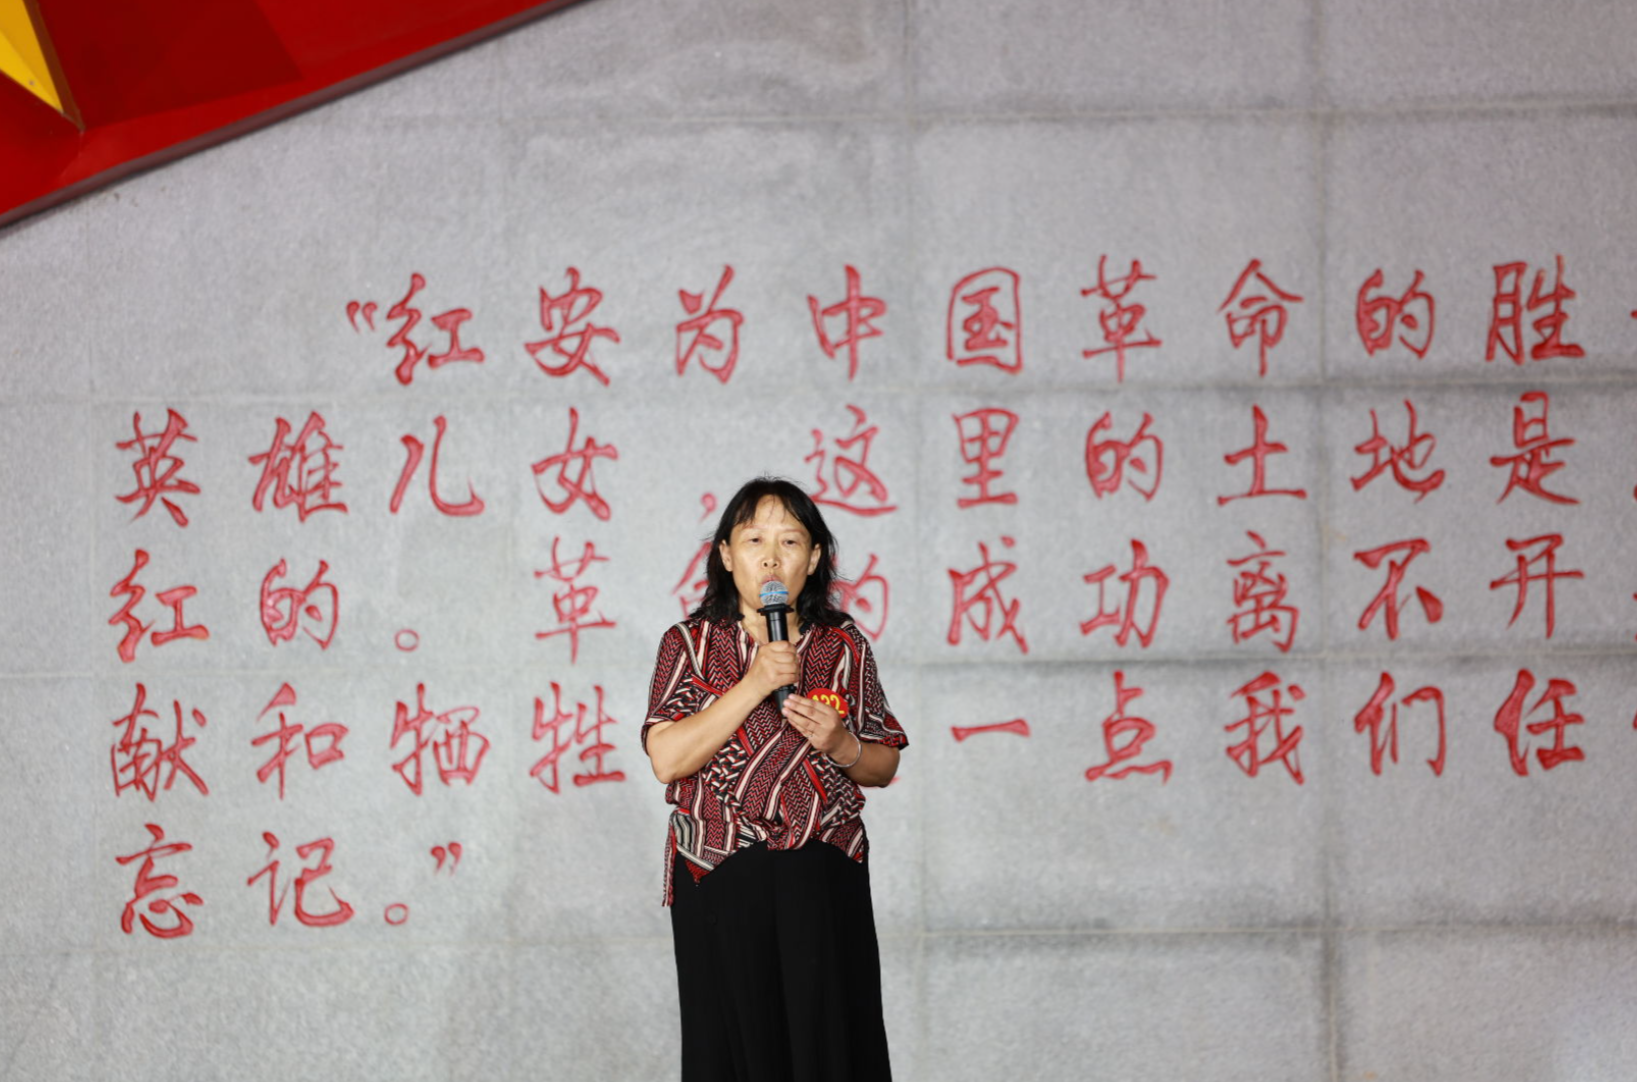 “红安为中国革命的胜
英雄儿女，这里的土地是
红的。革命的成功离不开
献和牺牲 一点我们任
忘记。”